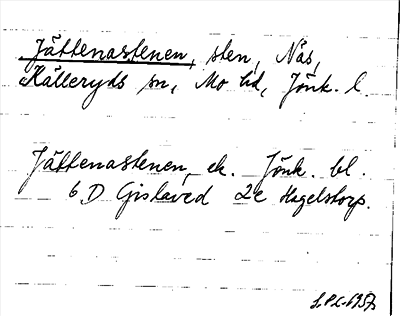 Jättenastenen, sten, Nås,
Källeryds sn, Mo hd, Jönk. l.
Jättenastenen, ek. Jönk. bl.
6 D Gislaved 2e Hagelstorp.